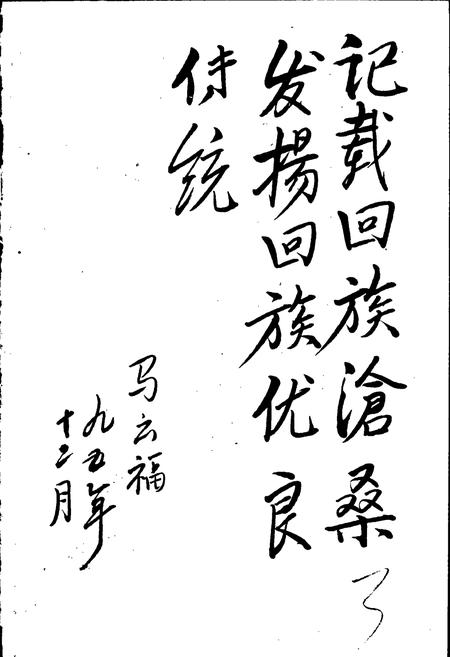 记载回族滄桑
发揚回族优良
传统
马云福
九五年
十二月